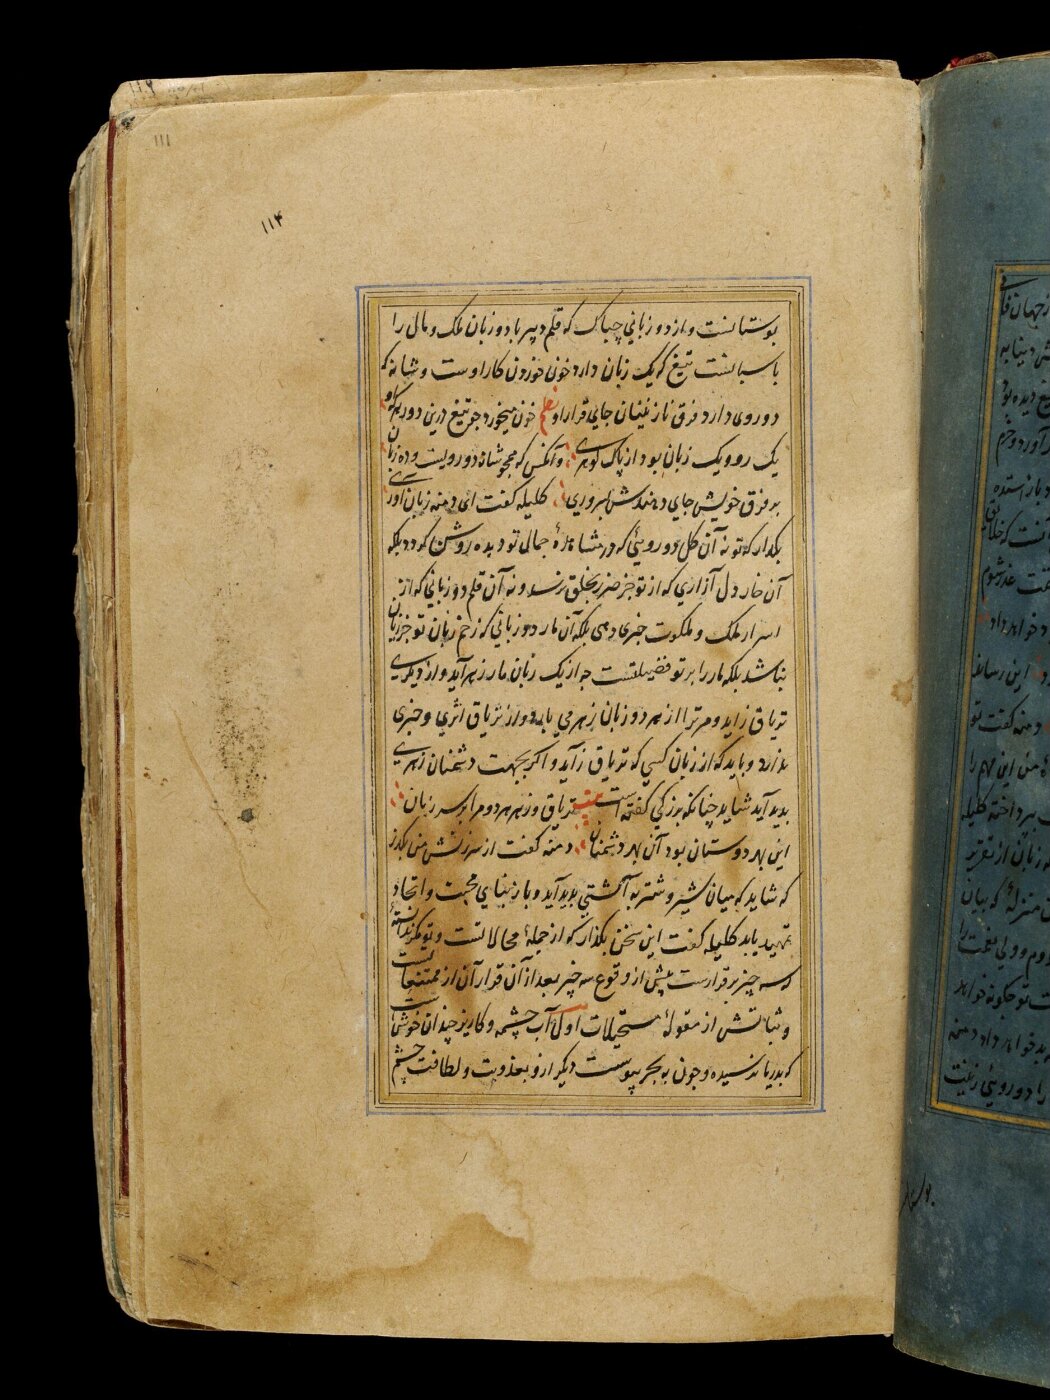 ۱۱۱
۱۱۴
بوستانست و از دو زبانی چه باک که قلم دبیر با دو زبان ملک و مال را
پاسبانست تیغ که یک زبان دارد خون خوردن کار اوست و شانه که
دو روی دارد فرق نازنینان جای قرار او نظم خون میخورد چو تیغ درین دور هر که او
یک رو و یک زبان بود از پاک گوهری وآنکس که همچو شانه دو رویست و ده زبان
بر فرق خویش جای دهندش بسروری کلیله گفت ای دمنه زبان آوری
بگذار که تو نه آن گل دو رویی که در مشاهدهٔ جمال تو دیده روشن گردد بلکه
آن خار دل آزاری که از تو جز ضرر بخلق نرسد و نه آن قلم دو زبانی که از
اسرار ملک و ملکوت خبری دهی بلکه آن مار دو زبانی که زخم زبان تو جز زیان
نباشد بلکه مار را بر تو فضیلتست چه از یک زبان مار زهر آید و از دیگری
تریاق زاید و مر ترا از هر دو زبان زهر می بارد و از تریاق اثری و خبری
ندارد و باید که از زبان کسی که تریاق زآید و اگر بجهت دشمنان زهری
بدید آید شاید چنانکه بزرگی گفته است بیت تریاق و زهر هر دو مرا بر سر زبان
این بهر دوستان بود آن بهر دشمنان دمنه گفت از سرزنش من بگذر
که شاید که میان شیر و شتربه آشتی بدید آید و باز بنای محبت و اتحاد
تمهید یابد کلیله گفت این سخن بگذار که از جملهٔ محالاتست و تو مگر ندانستهٔ
که سه چیز بر قرارست پیش از وقوع سه چیز بعد از آن قرار آن از ممتنعاتست
و ثباتش از مقولهٔ مستحیلات اول آب چشمه و کاریز چندان خوشست
که بدریا نرسیده و چون به بحر پیوست دیگر ازو بعذوبت و لطافت چشم